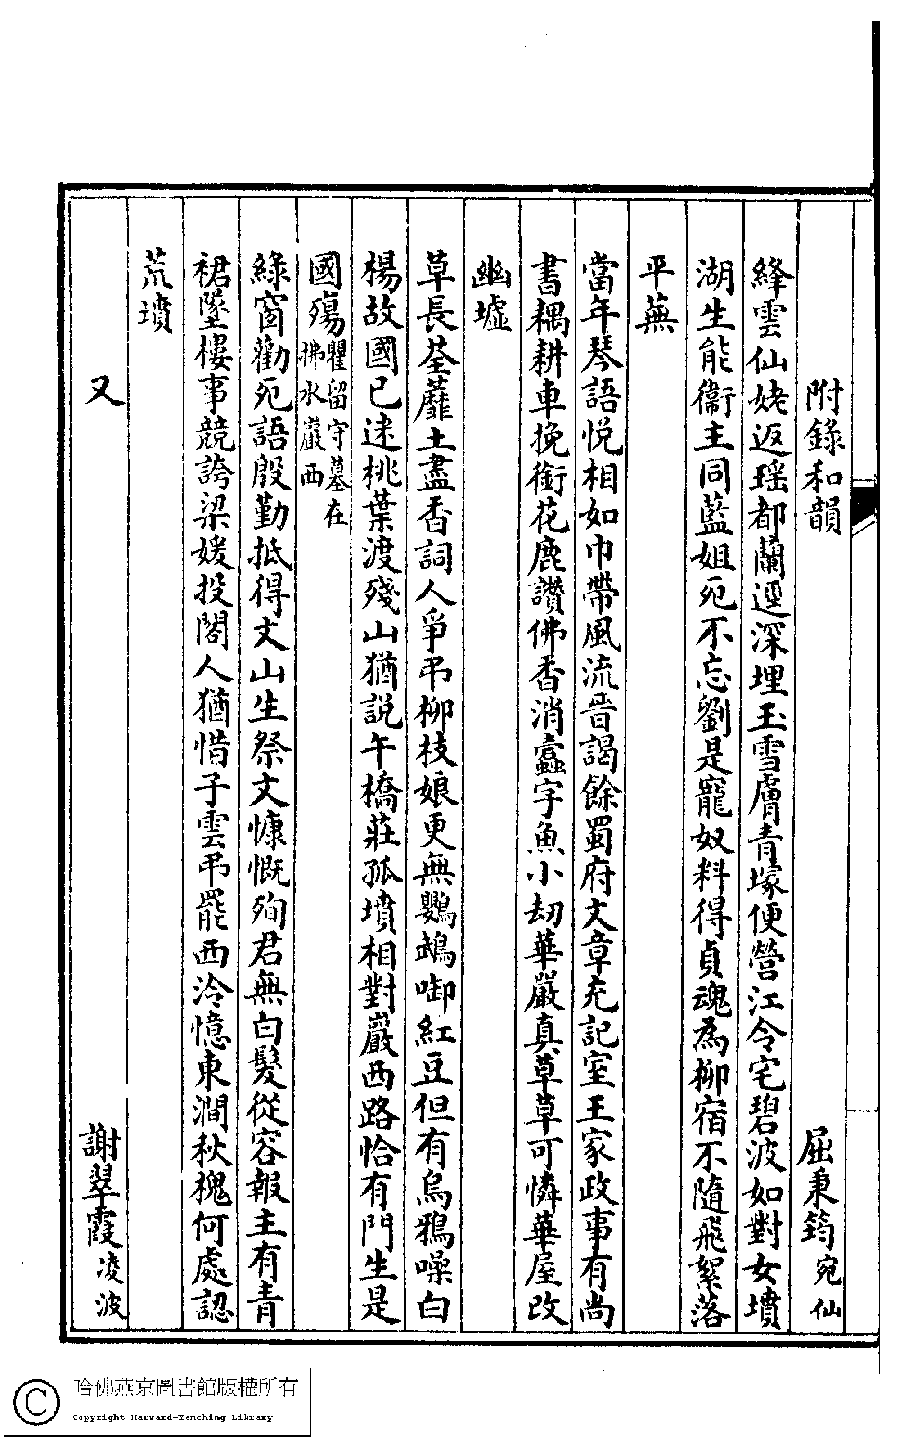 附錄和韻 屈秉筠宛仙
絳雲仙姥返瑶都蘭逕深埋玉雪膚青塚便營江令宅碧波如對女墳
湖生能衞主同藍姐死不忘劉是寵奴料得貞魂為柳宿不隨飛絮落
平蕪
當年琴語悅相如巾帶風流晉謁餘蜀府文章充記室王家政事有尚
書耦耕車挽銜花鹿讚佛香消蠧字魚小劫華嚴真草草可憐華屋改
幽墟
草長荃蘼土盡香詞人爭弔柳枝娘更無鸚鵡啣紅豆但有烏鴉噪白
楊故國已迷桃葉渡殘山猶説午橋莊孤墳相對巖西路恰有門生是
國殤瞿留守墓在拂水巖西
綠窗勸死語殷勤抵得文山生祭文慷慨殉君無白髮從容報主有青
裙墜樓事競誇梁媛投閣人猶惜子雲弔罷西泠憶東澗秋槐何處認
荒墳
又 謝翠霞凌波
哈佛燕京圖書館版權所有
Copyright Harvard-Yenching Library